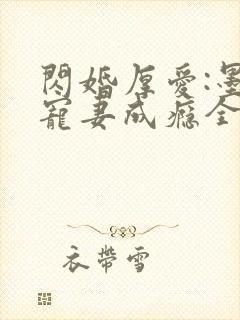 閃婚厚愛:墨
寵妻成癮全
衣帶雪